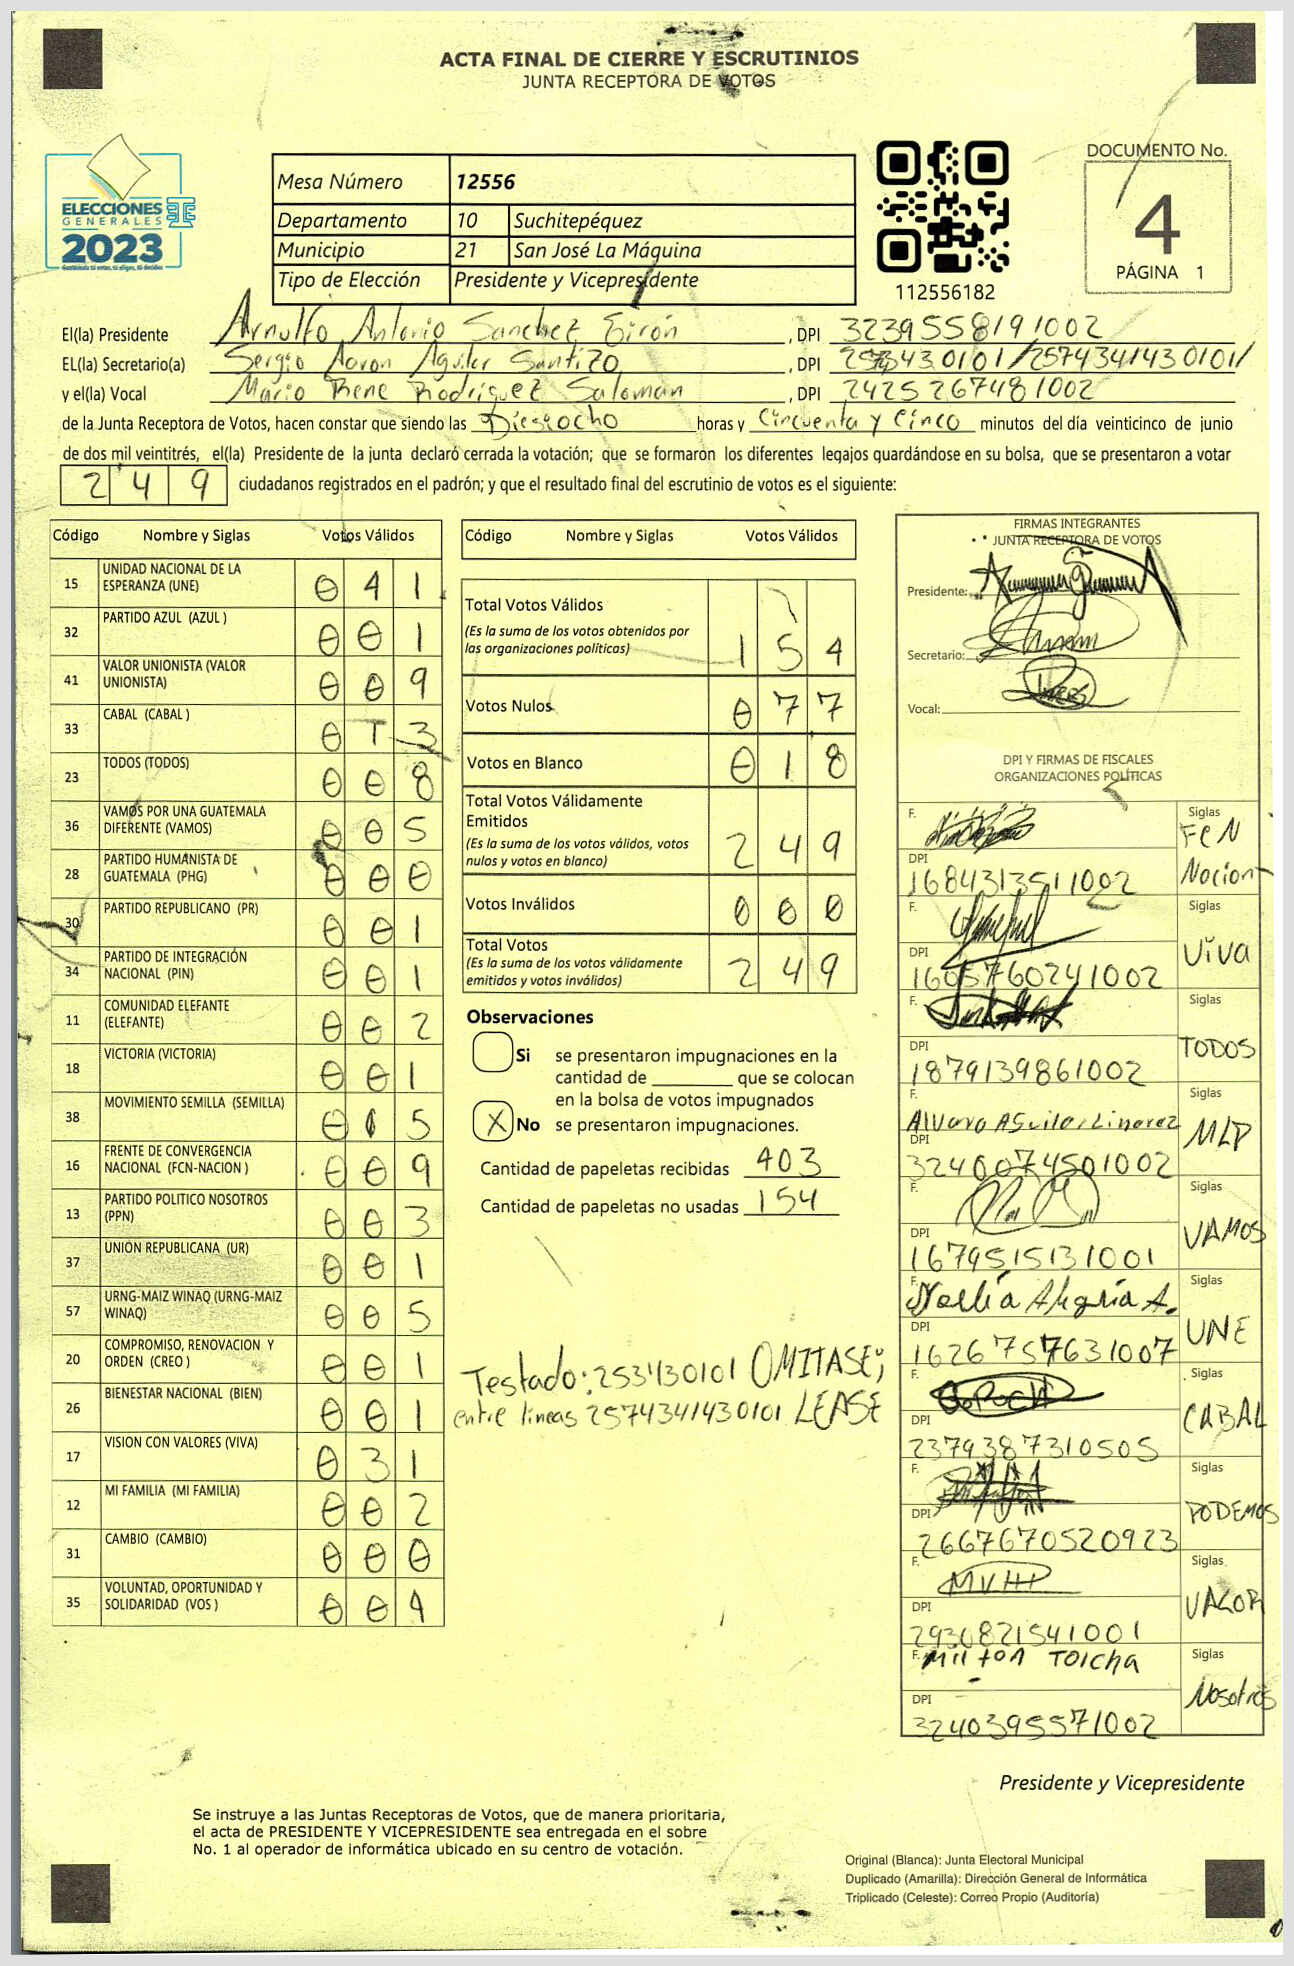 ACTA FINAL DE CIERRE Y ESCRUTINIOS
JUNTA RECEPTORA DE VOTOS
ELECCIONES
GENERALES
2023
Mesa Número 12556
Departamento 10 Suchitepéquez
Municipio 21 San José La Máquina
Tipo de Elección Presidente y Vicepresidente
112556182
DOCUMENTO No.
4
PÁGINA 1
El(la) Presidente Arnulfo Antonio Sanchez Girón, DPI 3239558191002
EL(la) Secretario(a) Sergio Aaron Aguilar Santizo, DPI 2534430101/2574341430101/
y el(la) Vocal Mario Rene Rodriguez Saloman, DPI 2425267481002
de la Junta Receptora de Votos, hacen constar que siendo las Diesiocho horas y Cincuenta y Cinco minutos del día veinticinco de junio
de dos mil veintitrés, el(la) Presidente de la junta declaró cerrada la votación; que se formaron los diferentes legajos guardándose en su bolsa, que se presentaron a votar
249 ciudadanos registrados en el padrón; y que el resultado final del escrutinio de votos es el siguiente:
Código Nombre y Siglas Votos Válidos
15 UNIDAD NACIONAL DE LA ESPERANZA (UNE) 0 4 1
32 PARTIDO AZUL (AZUL ) 0 0 1
41 VALOR UNIONISTA (VALOR UNIONISTA) 0 0 9
33 CABAL (CABAL ) 0 1 3
23 TODOS (TODOS) 0 0 8
36 VAMOS POR UNA GUATEMALA DIFERENTE (VAMOS) 0 0 5
28 PARTIDO HUMANISTA DE GUATEMALA (PHG) 0 0 0
30 PARTIDO REPUBLICANO (PR) 0 0 1
34 PARTIDO DE INTEGRACIÓN NACIONAL (PIN) 0 0 1
11 COMUNIDAD ELEFANTE (ELEFANTE) 0 0 2
18 VICTORIA (VICTORIA) 0 0 1
38 MOVIMIENTO SEMILLA (SEMILLA) 0 1 5
16 FRENTE DE CONVERGENCIA NACIONAL (FCN-NACION ) 0 0 9
13 PARTIDO POLITICO NOSOTROS (PPN) 0 0 3
37 UNION REPUBLICANA (UR) 0 0 1
57 URNG-MAIZ WINAQ (URNG-MAIZ WINAQ) 0 0 5
20 COMPROMISO, RENOVACION Y ORDEN (CREO ) 0 0 1
26 BIENESTAR NACIONAL (BIEN) 0 0 1
17 VISION CON VALORES (VIVA) 0 3 1
12 MI FAMILIA (MI FAMILIA) 0 0 2
31 CAMBIO (CAMBIO) 0 0 0
35 VOLUNTAD, OPORTUNIDAD Y SOLIDARIDAD (VOS ) 0 0 4
Código Nombre y Siglas Votos Válidos
Total Votos Válidos
(Es la suma de los votos obtenidos por
las organizaciones políticas) 1 5 4
Votos Nulos 0 7 7
Votos en Blanco 0 1 8
Total Votos Válidamente
Emitidos
(Es la suma de los votos válidos, votos
nulos y votos en blanco) 2 4 9
Votos Inválidos 0 0 0
Total Votos
(Es la suma de los votos válidamente
emitidos y votos inválidos) 2 4 9
Observaciones
Si se presentaron impugnaciones en la
cantidad de ________ que se colocan
en la bolsa de votos impugnados
X No se presentaron impugnaciones.
Cantidad de papeletas recibidas 403
Cantidad de papeletas no usadas 154
Testado: 253430101 OMITASE;
entre lineas 2574341430101 LEASE
FIRMAS INTEGRANTES
JUNTA RECEPTORA DE VOTOS
Presidente:
Secretario:
Vocal:
DPI Y FIRMAS DE FISCALES
ORGANIZACIONES POLÍTICAS
F. Siglas FCN Nacion
DPI 1684313511002
F. Siglas Viva
DPI 1605760241002
F. Siglas TODOS
DPI 1879139861002
F. Alvaro Aguilar Linarez Siglas MLP
DPI 3240074501002
F. Siglas VAMOS
DPI 1679515131001
F. Noelia Alegria A. Siglas UNE
DPI 1626757631007
F. Siglas CABAL
DPI 2379387310505
F. Siglas PODEMOS
DPI 2667670520923
F. Siglas VALOR
DPI 2930821541001
F. Milton Toicha Siglas Nosotros
DPI 3240395571002
Presidente y Vicepresidente
Se instruye a las Juntas Receptoras de Votos, que de manera prioritaria,
el acta de PRESIDENTE Y VICEPRESIDENTE sea entregada en el sobre
No. 1 al operador de informática ubicado en su centro de votación.
Original (Blanca): Junta Electoral Municipal
Duplicado (Amarilla): Dirección General de Informática
Triplicado (Celeste): Correo Propio (Auditoría)